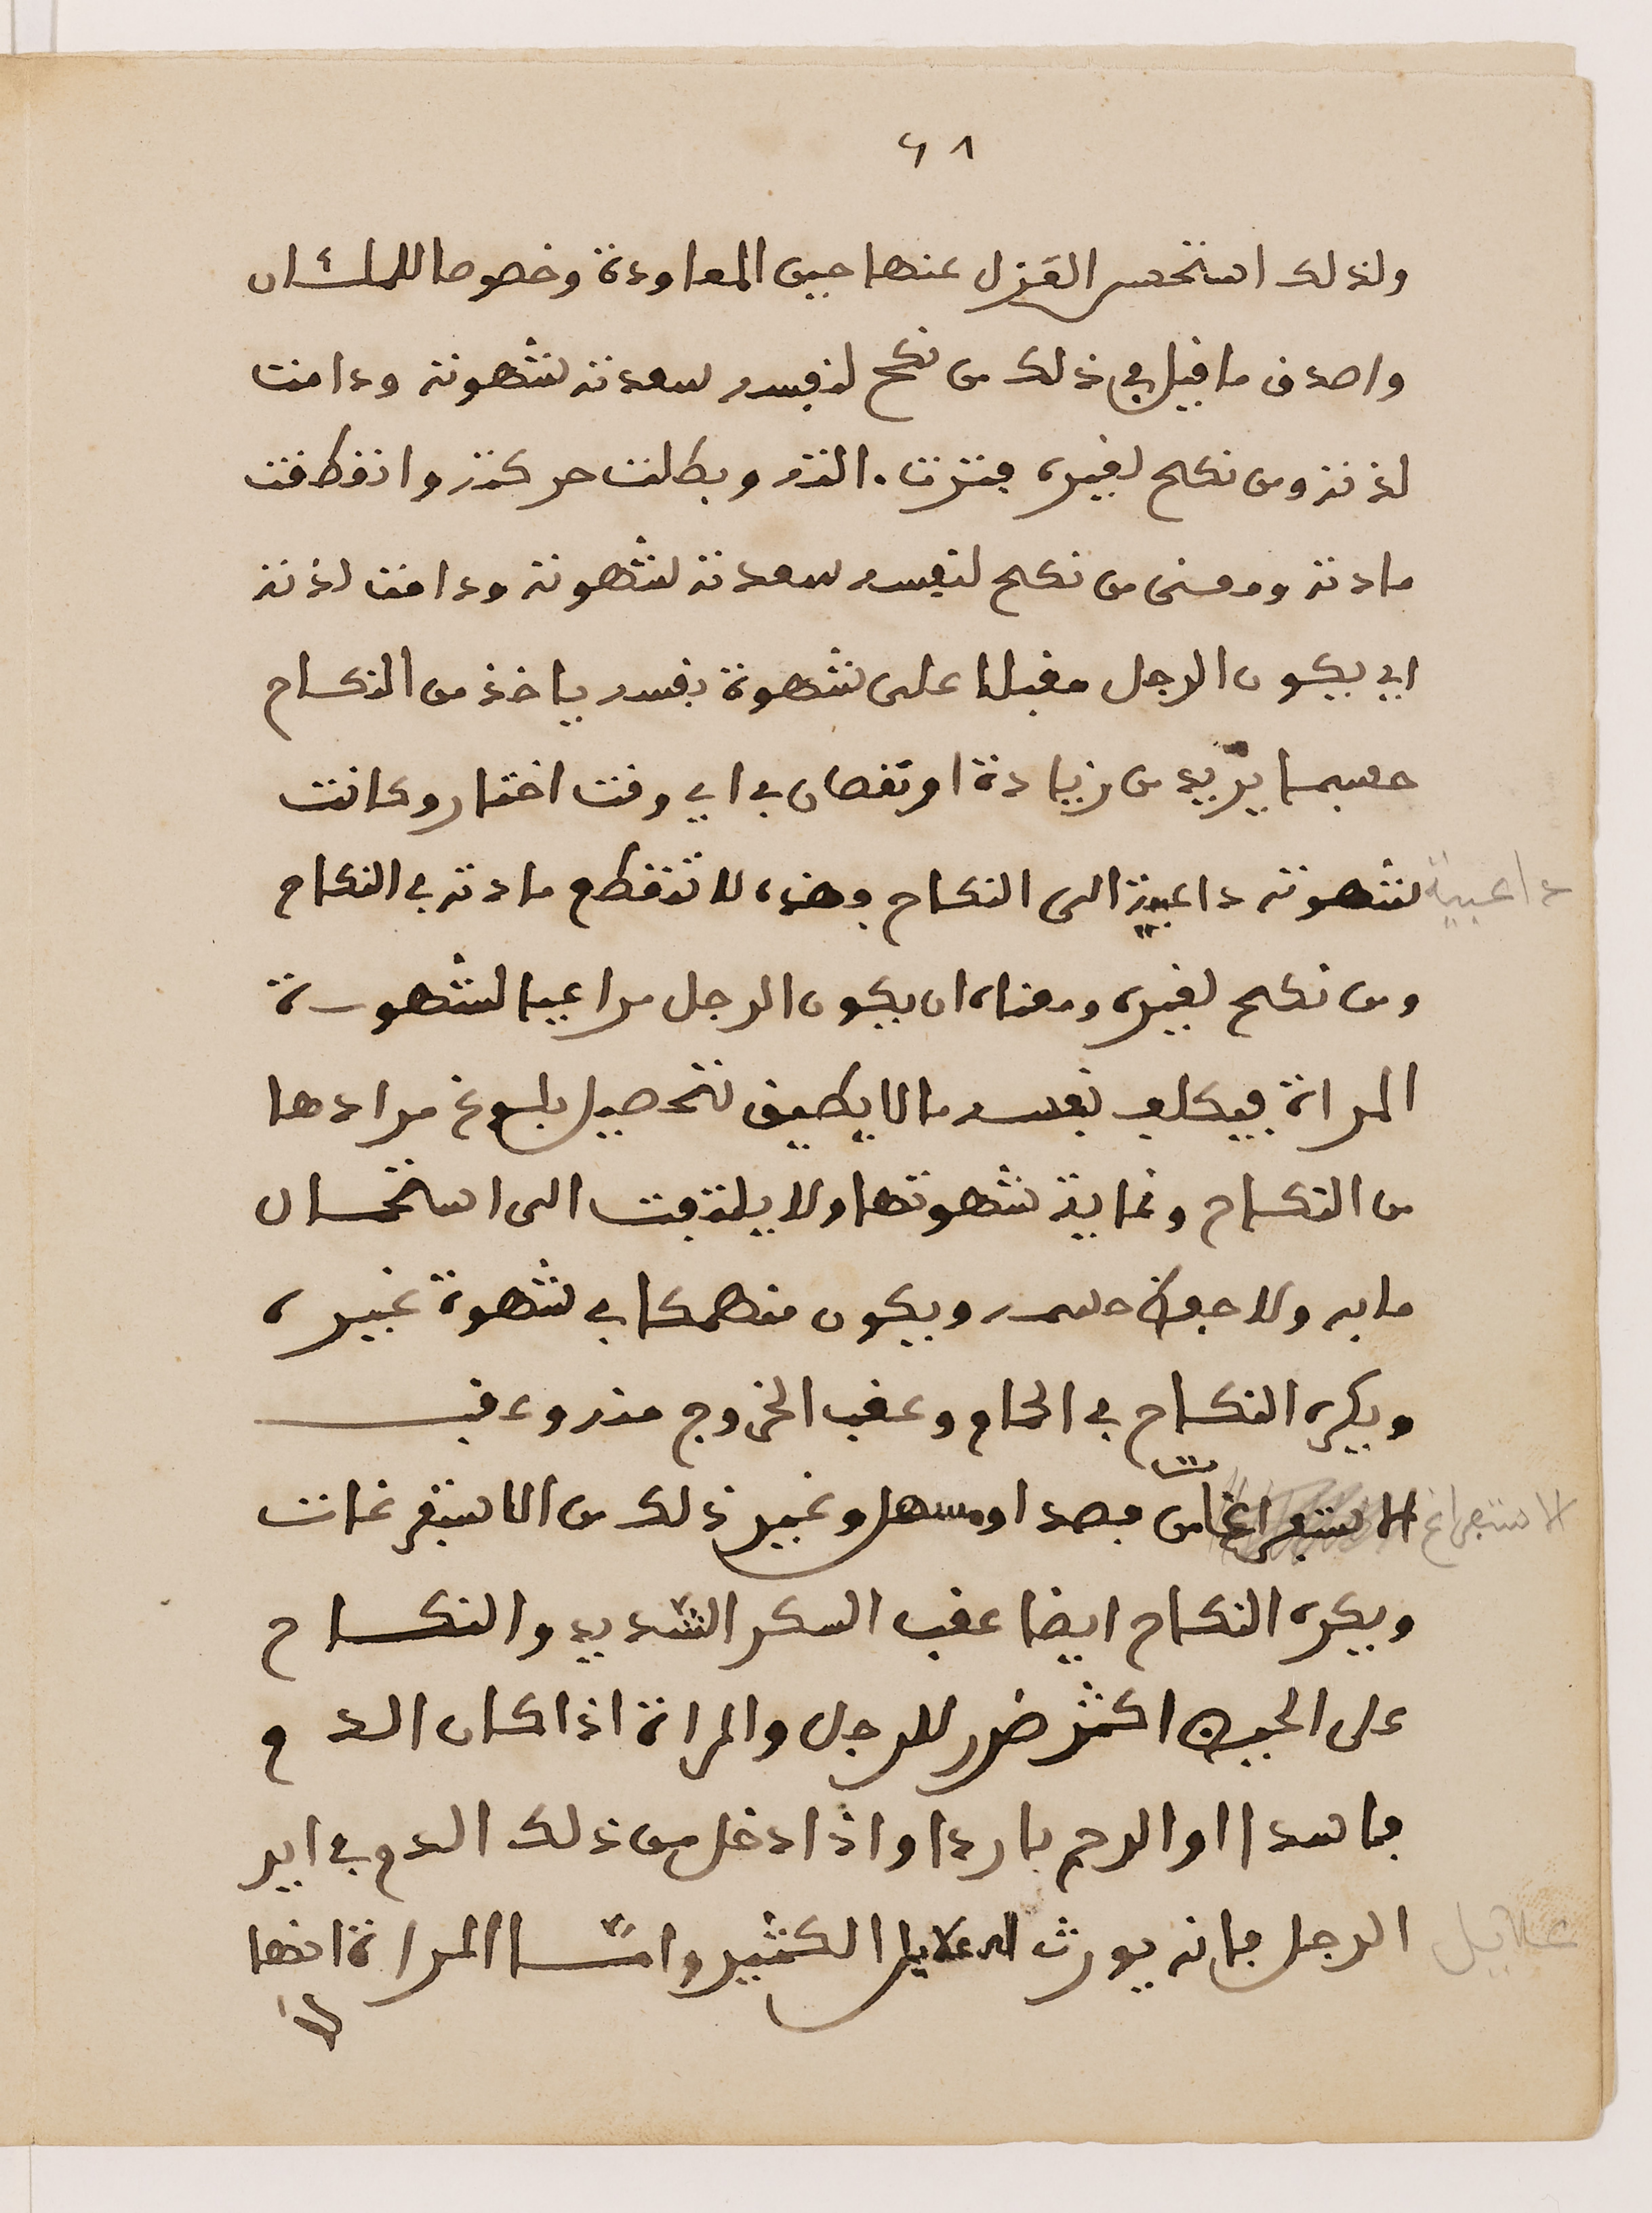 ٤٨
ولذلك استحسن العزل عنها حين المعاودة وخصوصا للملشان
واصدق ما فيل في ذلك من نكح لنفسه سعدته شهوته ودامت
لذته ومن نكح لغيره فترت الته وبطلت حركته وانقطعت
مادته ومعنى من نكح لنفسه سعدته شهوته ودامت لذته
اي يكون الرجل مقبلا على شهوة نفسه ياخذ من النكاح
حسبما يريد من زيادة او نقصان في اي وقت اختار وكانت
شهوته داعية الى النكاح وهذه لا تنقطع مادته في النكاح
داعية
ومن نكح لغيره ومعناه ان يكون الرجل مراعيا لشهوة
المراة فيكلف نفسه ما لا يطيق لتحصيل بلوغ مرادها
من النكاح وغاية شهوتها ولا يلتفت الى استحسان
ما به ولا حفظ جسمه ويكون منهمكا في شهوة غيره
ويكره النكاح في الحمام وعقب الخروج منه وعقب
الاستفراغات من فصد او مسهل وغير ذلك من الاستفرغات
الاستفراغ
ويكره النكاح ايضا عقب السكر الشديد والنكاح
على الحيض اكثر ضرر للرجل والمراة اذا كان الدم
فاسدا او الرحم باردا واذا دخل من ذلك الدم في اير
الرجل فانه يورث العلايل الكثير وامّا المراة انها
علايل